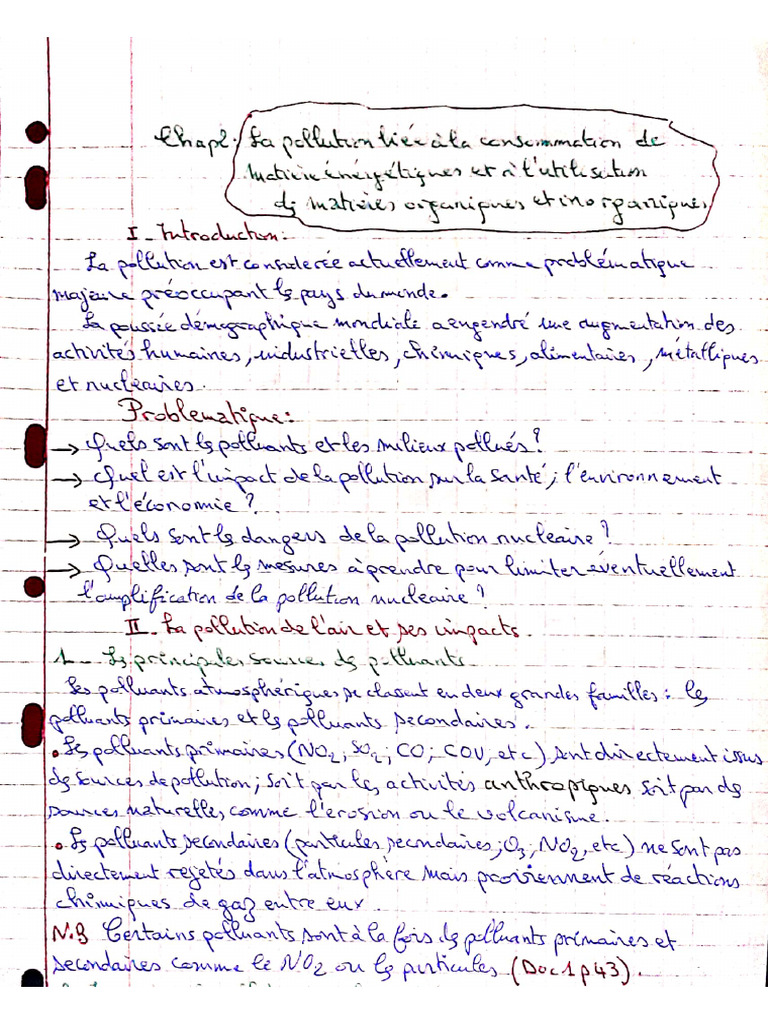 Chap2: La pollution liée à la consommation de
matière énérgétiques et à l'utilisation
ds matières organiques et inorganiques
I - Introduction:
La pollution est considérée actuellement comme problématique
majeure préoccupant ls pays du monde.
La poussée démographique mondiale a engendré une augmentation des
activités humaines, industrielles, chimiques, alimentaires, métalliques
et nucléaires.
Problematique:
→ Quels sont ls polluants et les milieux pollués?
→ Quel est l'impact de la pollution sur la santé; l'environnement
et l'économie?
→ Quels sont ls dangers de la pollution nucléaire?
→ Quelles sont ls mesures à prendre pour limiter éventuellement
l'amplification de la pollution nucléaire?
II - La pollution de l'air et ses impacts.
1 - Ls principales sources ds polluants
Les polluants atmosphériques se classent en deux grandes familles: ls
polluants primaires et ls polluants secondaires.
• Ls polluants primaires (NO2; SO2; CO; COV, etc) sont directement issus
ds sources de pollution; soit par les activités anthropiques soit par ds
sources naturelles comme l'erosion ou le volcanisme.
• Ls polluants secondaires (particules secondaires; O3; NO2, etc) ne sont pas
directement rejetés dans l'atmosphère mais proviennent de réactions
chimiques de gaz entre eux.
N.B Certains polluants sont à la fois ds polluants primaires et
secondaires comme le NO2 ou ls particules (Doc 1 p 43).